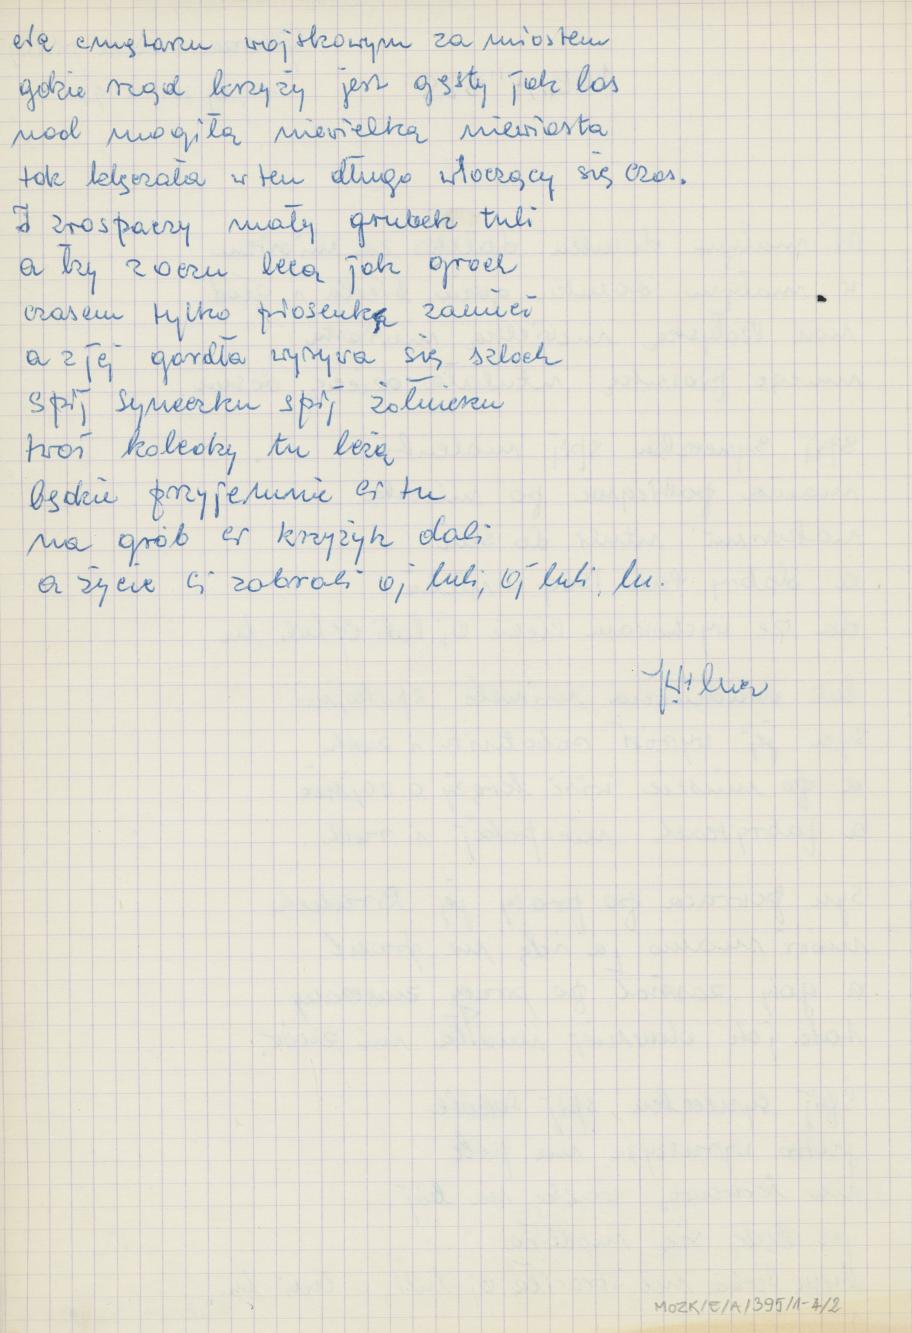 cmętarzu wojskowym za miastem
gdzie rząd krzyży jest gęsty jak las
nad mogiłą niewielką niewiasta
tak klęczała w ten długo włoczący się czas.
I zrospaczy mały grubek tuli
a łzy z oczu lecą jak groch
czasem tylko piosenkę zanuci
a z jej gardła wyrywa się szloch
spij syneczku spij żołnierzu
twoi koledzy tu leżą
będzie przyjemnie ci tu
na grób ci krzyżyk dali
a życie ci zabrali oj luli, oj luli, lu.
MOZK/E/A/395/1-4/2